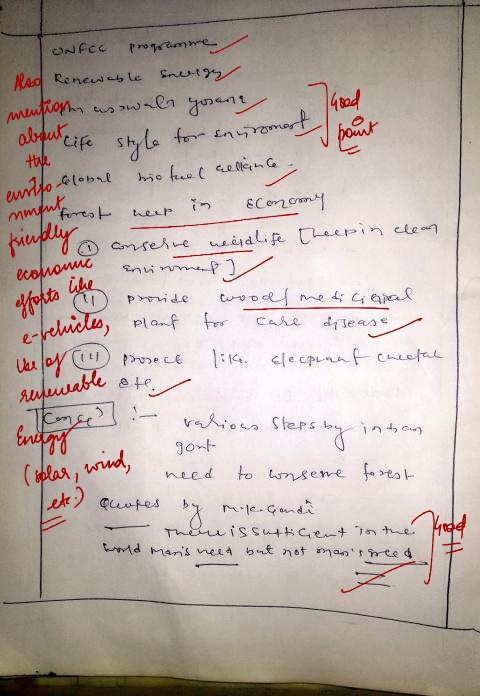 UNFCC programme
Renewable Energy
Pm asswala yojane
Life style for enviroment
Global biofuel alliance.
forest help in Economy
(i) conserve weidlife [help in clean
environment]
(ii) provide wood/medicienal
plant for care disease
(iii) project like. elecphant cheetah
etc.
Concl :-
various steps by indian
govt
need to conserve forest
Quotes by M.K Gandi
There is sufficient in the
world man's need but not man's greed
Also
mention
about
the
enviro-
nment
friendly
economic
efforts like
e-vehicles,
Use of
renewable
Energy
(solar, wind,
etc.)
Good
point
Good